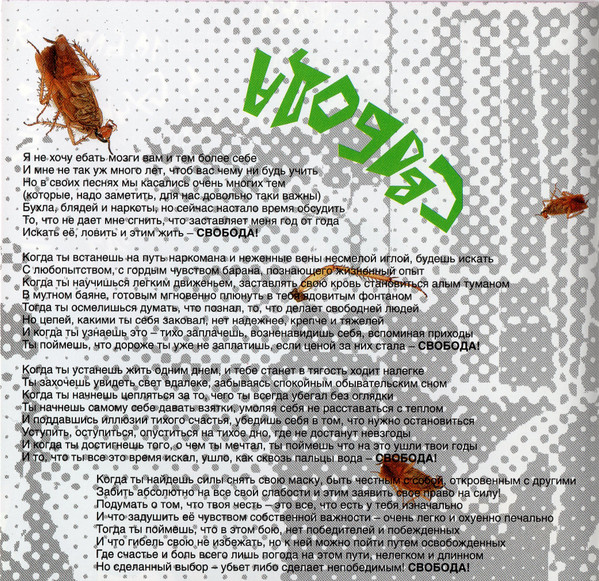 СВОБОДА
Я не хочу ебать мозги вам и тем более себе
И мне не так уж много лет, чтоб вас чему ни будь учить
Но в своих песнях мы касались очень многих тем
(которые, надо заметить, для нас довольно таки важны)
Бухла, блядей и наркоты, но сейчас настало время обсудить
То, что не дает мне сгнить, что заставляет меня год от года
Искать её, ловить и этим жить – СВОБОДА!
Когда ты встанешь на путь наркомана и неженные вены несмелой иглой, будешь искать
С любопытством, с гордым чувством барана, познающего жизненный опыт
Когда ты научишься легким движеньем, заставлять свою кровь становиться алым туманом
В мутном баяне, готовым мгновенно плюнуть в тебя ядовитым фонтаном
Тогда ты осмелишься думать, что познал, то, что делает свободней людей
Но цепей, какими ты себя заковал, нет надежнее, крепче и тяжелей
И когда ты узнаешь это – тихо заплачешь, возненавидишь себя, вспоминая приходы
Ты поймешь, что дороже ты уже не заплатишь, если ценой за них стала – СВОБОДА!
Когда ты устанешь жить одним днем, и тебе станет в тягость ходить налегке
Ты захочешь увидеть свет вдалеке, забываясь спокойным обывательским сном
Когда ты начнешь цепляться за то, чего ты всегда убегал без оглядки
Ты начнешь самому себе давать взятки, умоляя себя не расставаться с теплом
И поддавшись иллюзии тихого счастья, убедишь себя в том, что нужно остановиться
Уступить, оступиться, опуститься на тихое дно, где не достанут невзгоды
И когда ты достигнешь того, о чем ты мечтал, ты поймешь что на это ушли твои годы
И то, что ты все это время искал, ушло, как сквозь пальцы вода – СВОБОДА!
Когда ты найдешь силы снять свою маску, быть честным с собой, откровенным с другими
Забить абсолютно на все свои слабости и этим заявить свое право на силу!
Подумать о том, что твоя честь – это все, что есть у тебя изначально
И что задушить её чувством собственной важности – очень легко и охуенно печально
Тогда ты поймешь, что в этом бою, нет победителей и побежденных
И что гибель свою не избежать, но к ней можно пойти путем освобожденных
Где счастье и боль всего лишь погода на этом пути, нелегком и длинном
Но сделанный выбор – убьет либо сделает непобедимым! СВОБОДА!